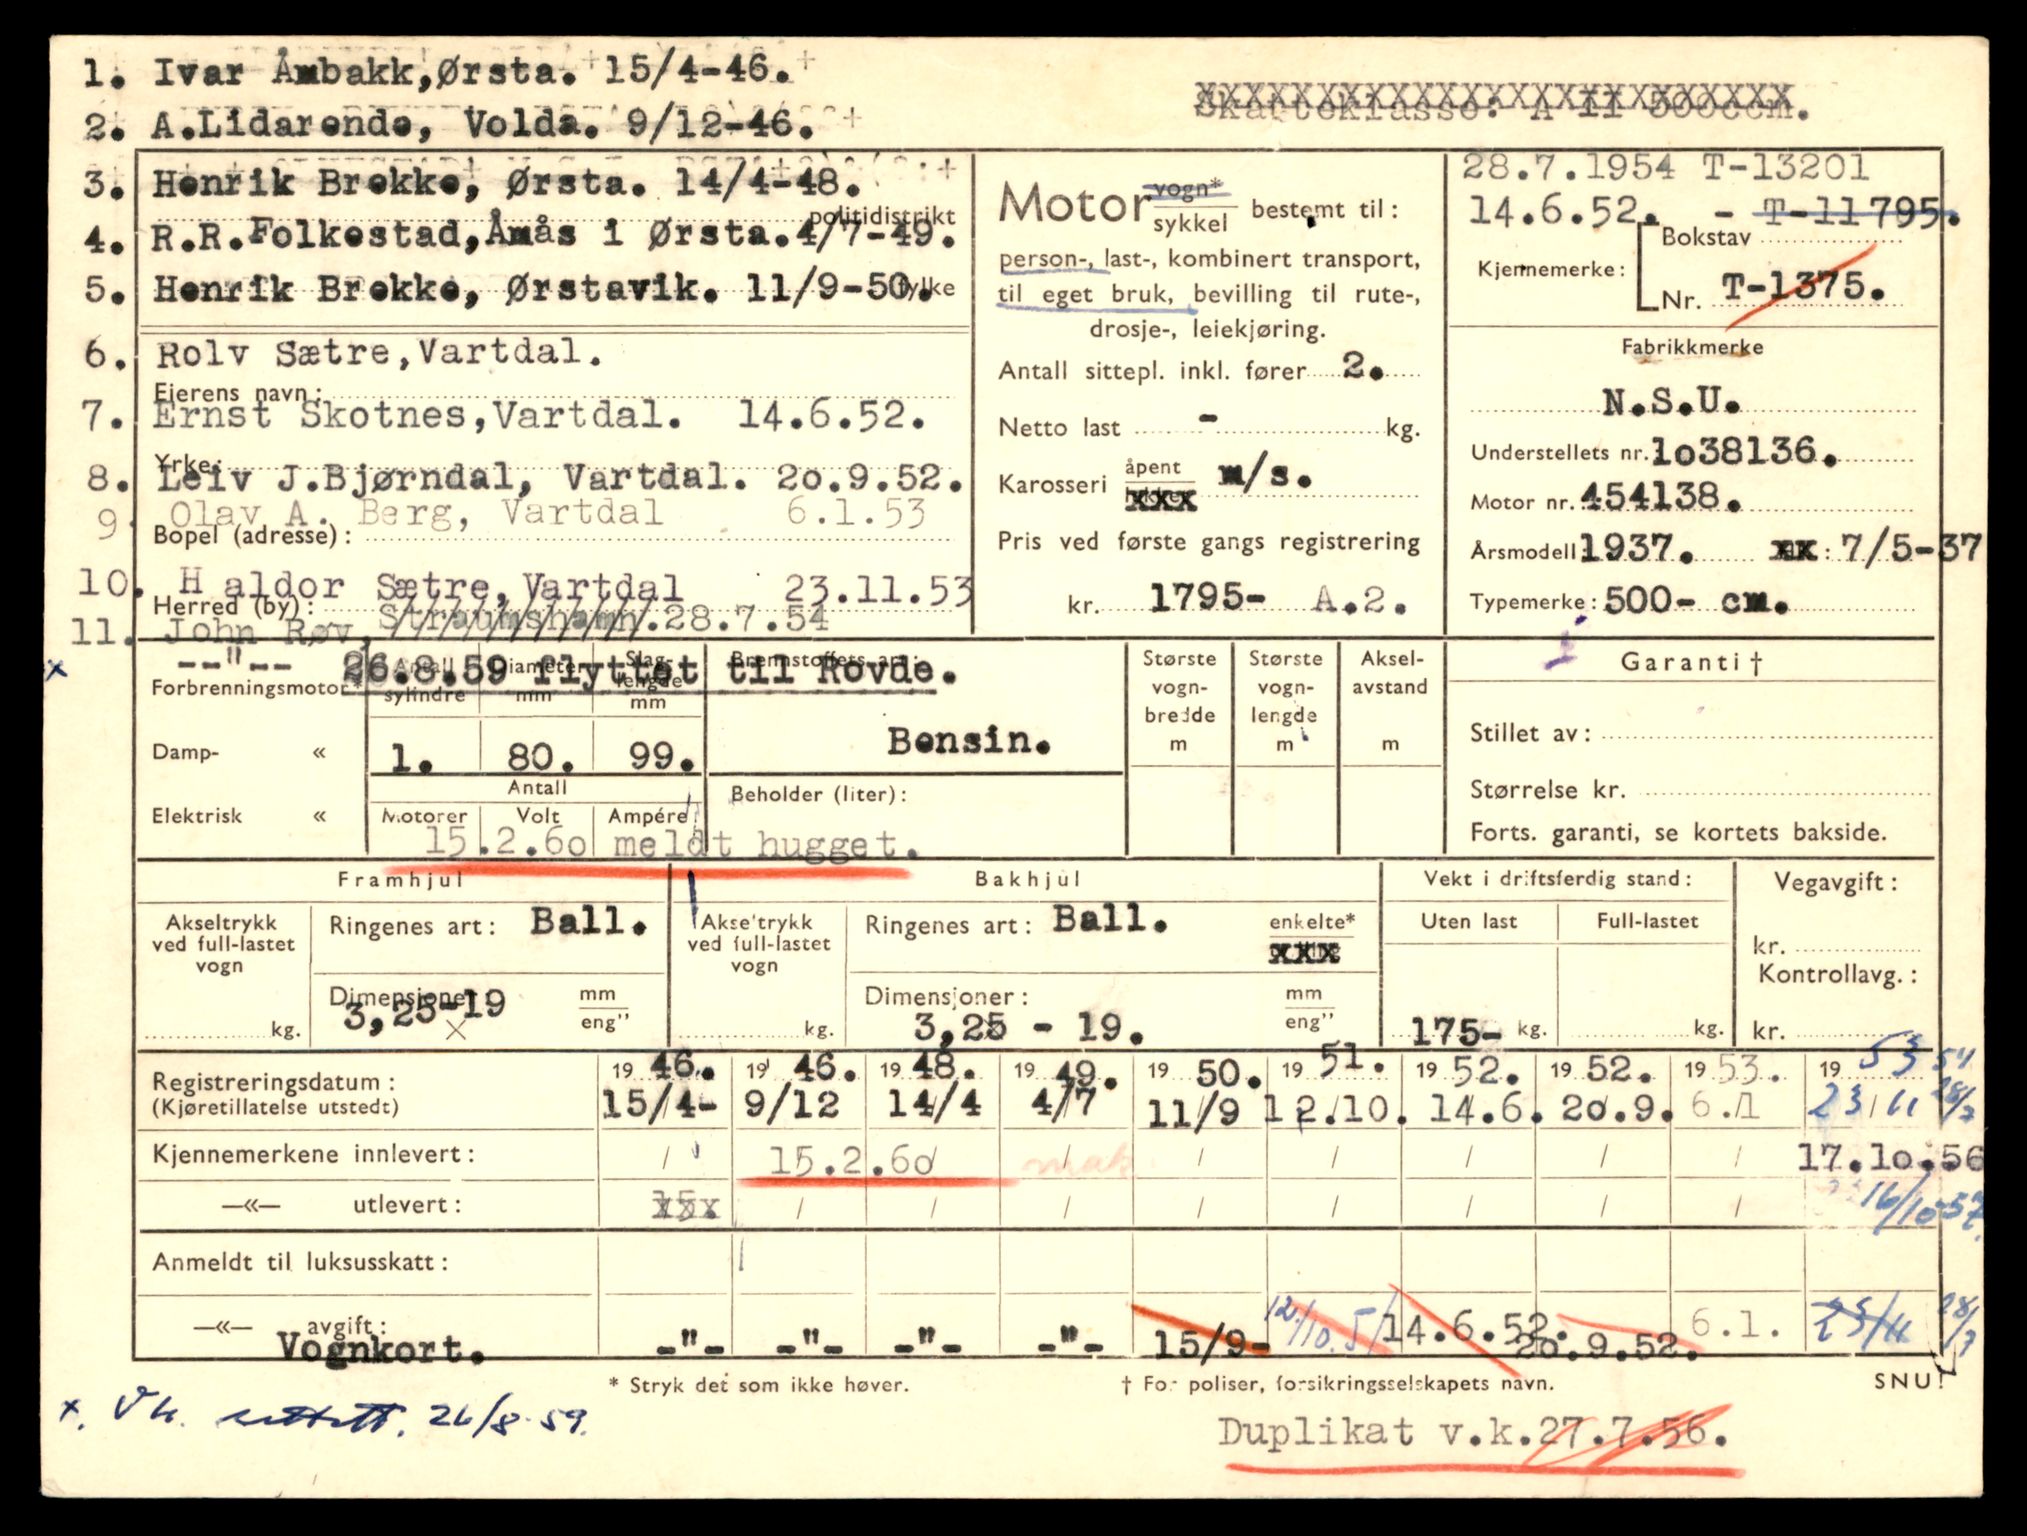 1. Ivar Åmbakk, Ørsta. 15/4-46.
2. A.Lidarende, Volda. 9/12-46.
Skatteklasse: A II 500ccm.
3. Henrik Brekke, Ørsta. 14/4-48.
politidistrikt
4. R.R.Folkestad, Åmås i Ørsta. 4/7-49.
5. Henrik Brekke, Ørstavik. 11/9-50.
fylke
6. Rolv Sætre, Vartdal.
Eierens navn:
7. Ernst Skotnes, Vartdal. 14.6.52.
Yrke:
8. Leiv J.Bjørndal, Vartdal. 20.9.52.
9. Olav A. Berg, Vartdal 6.1.53
Bopel (adresse):
10. Haldor Sætre, Vartdal 23.11.53
Herred (by):
11. John Røv, Straumshamn. 28.7.54
x --"-- 26.8.59 flyttet til Rovde.
Motor vogn* sykkel bestemt til:
person-, last-, kombinert transport,
til eget bruk, bevilling til rute-,
drosje-, leiekjøring.
Antall sittepl. inkl. fører 2.
Netto last - kg.
Karosseri åpent xxx m/s.
Pris ved første gangs registrering
kr. 1795- A.2.
28.7.1954 T-13201
14.6.52. - T-11795.
Kjennemerke: Bokstav
Nr. T-1375.
Fabrikkmerke
N.S.U.
Understellets nr. 1038136.
Motor nr. 454138.
Årsmodell 1937. xx: 7/5-37
Typemerke: 500- cm.
Forbrenningsmotor* Antall sylindre Diameter mm Slag-lengde mm Brennstoffets art:
Damp- « 1. 80. 99. Bensin.
Antall
Elektrisk « Motorer Volt Ampére Beholder (liter):
15.2.60 meldt hugget.
Største vogn-bredde m
Største vogn-lengde m
Aksel-avstand m
Garanti †
Stillet av:
Størrelse kr.
Forts. garanti, se kortets bakside.
Framhjul
Akseltrykk ved full-lastet vogn kg.
Ringenes art: Ball.
Dimensjoner: 3,25-19 mm eng"
x
Bakhjul
Akseltrykk ved full-lastet vogn kg.
Ringenes art: Ball. enkelte* xxx
Dimensjoner: 3,25 - 19. mm eng"
Vekt i driftsferdig stand:
Uten last Full-lastet
175- kg. kg.
Vegavgift:
kr.
Kontrollavg.:
kr.
Registreringsdatum: 1946. 1946. 1948. 1949. 1950. 1951. 1952. 1952. 1953. 19 53 54
(Kjøretillatelse utstedt) 15/4- 9/12 14/4 4/7 11/9 12.10. 14.6. 20.9. 6.1 23/11 28/7
Kjennemerkene innlevert: 15.2.60 mak 17.10.56
—«— utlevert: 15. 16/10-57.
Anmeldt til luksusskatt:
—«— avgift:
Vognkort. -"- -"- -"- -"- 15/9- 12/10.51 14.6.52. 20.9.52. 6.1. 23/11 28/7
* Stryk det som ikke høver.
† For poliser, forsikringsselskapets navn.
SNU!
x. Vk. rettett. 26/8-59.
Duplikat v.k. 27.7.56.